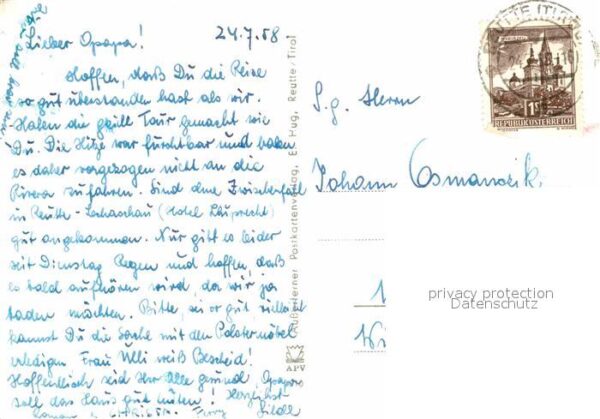 24.7.58
Lieber Opapa!
Hoffen, daß Du die Reise
so gut überstanden hast als wir.
Haben die Tour gemacht wie
Du. Die Hitze war furchtbar und haben
es daher vorgezogen nicht an die
Riviera zu fahren. Sind ohne Zwischenfall
in Reutte - Lechaschau (Hotel)
gut angekommen. Nur gibt es leider
seit Dienstag Regen und hoffen, daß
es bald aufhören wird, da wir ja
baden möchten. Bitte, sei so gut vielleicht
kannst Du die Sache mit den Polstermöbel
erledigen. Frau Ulli weiß Bescheid!
Hoffentlich seid Ihr Alle gesund, Opapa
soll das Haus gut hüten! Herzlichst
Außerferner Postkartenverlag, E. Hug, Reutte/Tirol
APV
REUTTE
1S
REPUBLIK ÖSTERREICH
S.g. Herrn
Johann
privacy protection
Datenschutz